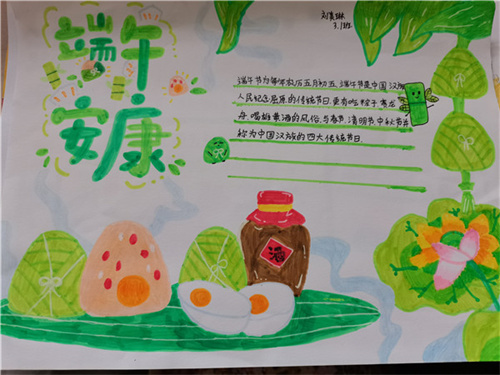 端午
安康
端午节为每年农历五月初五,端午节是中国汉族
人民纪念屈原的传统节日,更有吃粽子,赛龙
舟,喝雄黄酒的风俗,与春节,清明节,中秋节并
称为中国汉族的四大传统节日.
酒